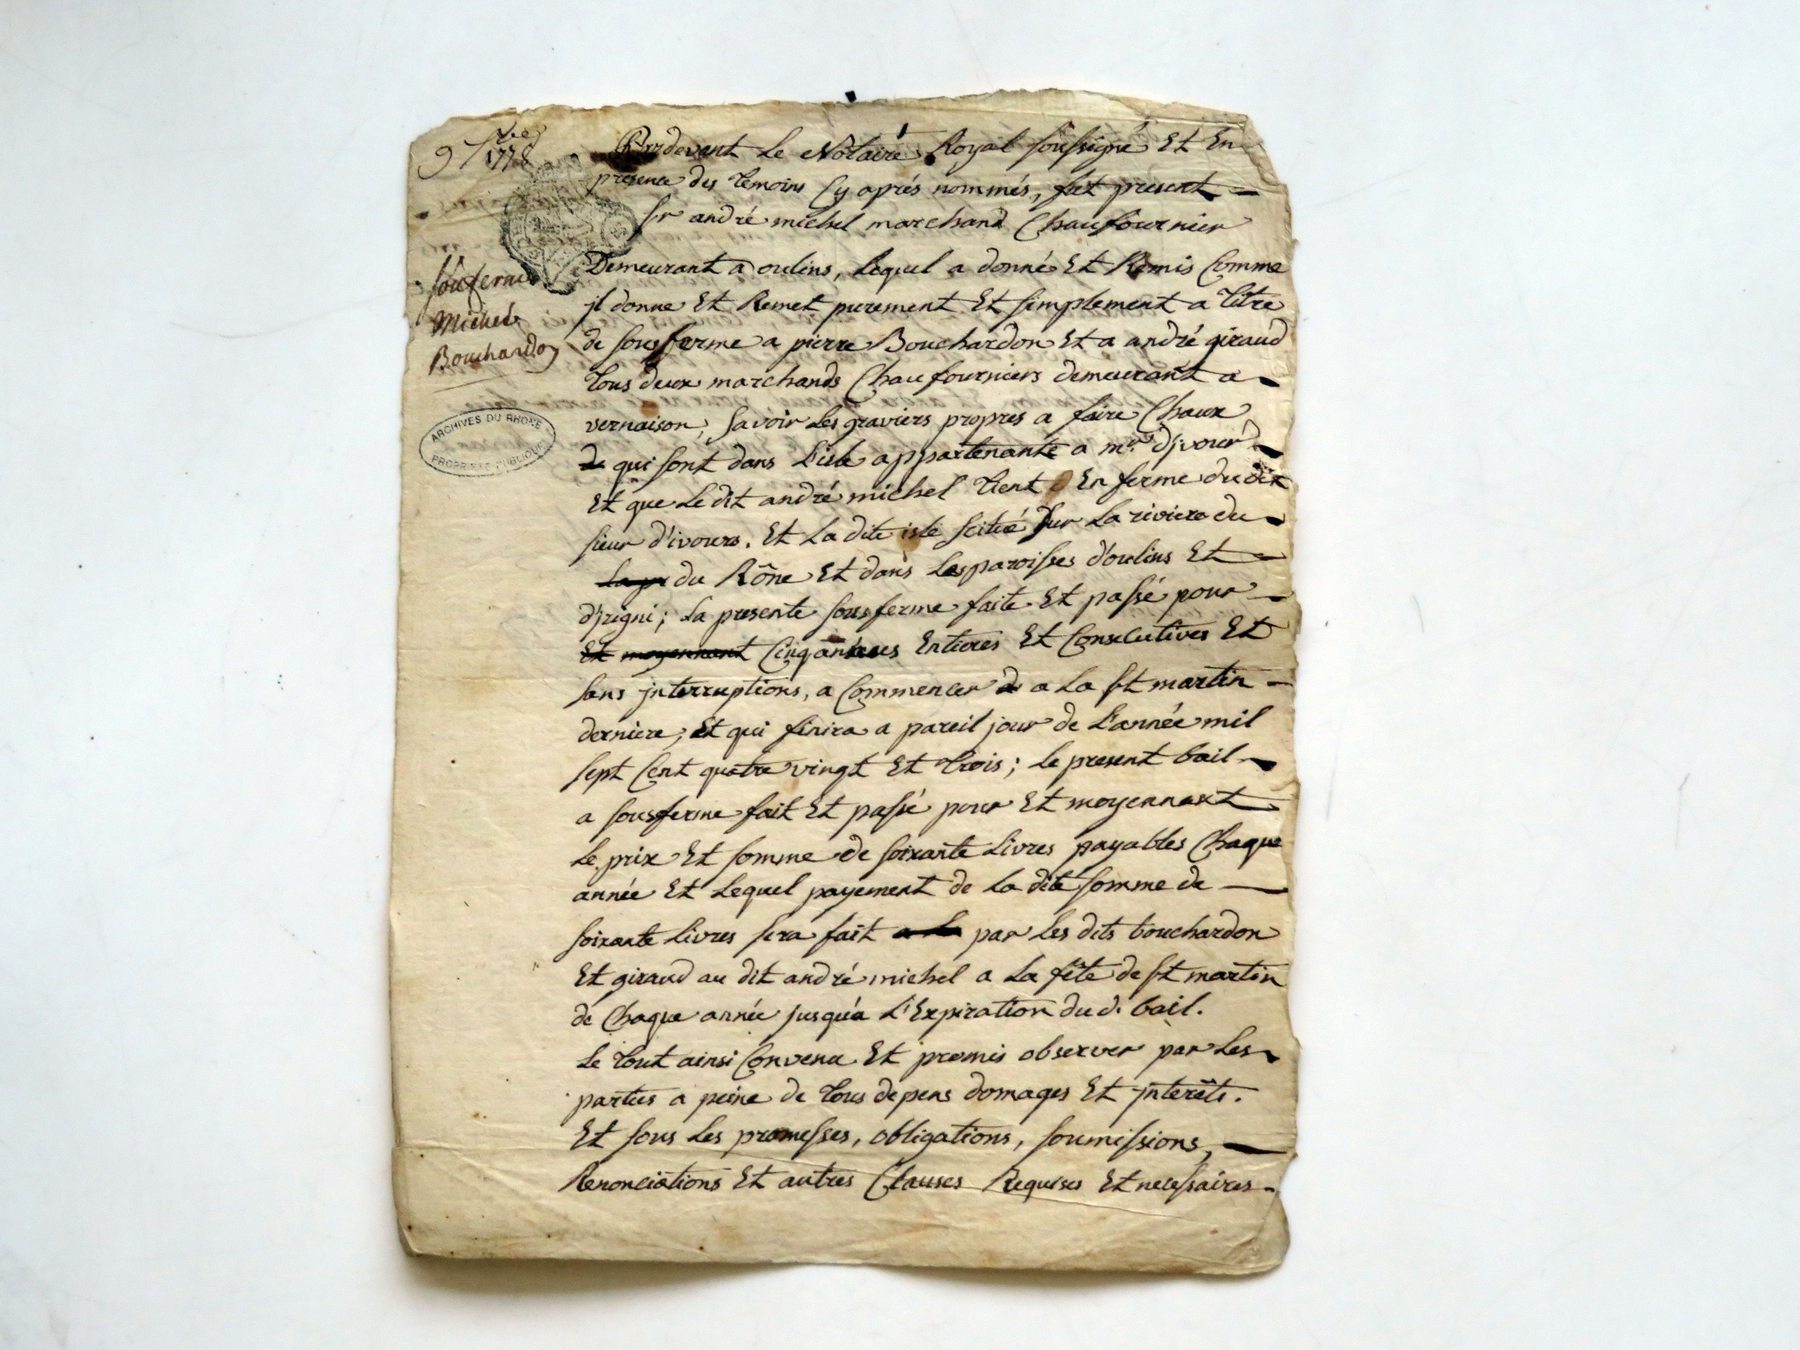 9 xbre 1778
Pardevant Le Notaire Royal soussigné Et En
presence des temoins Cy aprés nommés, fut present
sr andré michel marchand Chaufournier
Demeurant a oulins, Lequel a donné Et Remis Comme
sousferme
Michel
Bouchardon
jl donne Et Remet purement Et simplement a titre
de sousferme a pierre Bouchardon Et a andré giraud
tous deux marchands Chaufourniers demeurant a
vernaison, savoir Les graviers propres a faire Chaux
ARCHIVES DU RHONE
PROPRIETE PUBLIQUE
de qui sont dans L'isle appartenante a mr. d'jvour
Et que Le dit andré michel tient En ferme du dit
sieur d'ivours. Et La dite isle scitué sur La riviere du
du Rône Et dans Les paroisses d'oulins Et
d'jrigni; La presente sousferme faite Et passé pour
Et moyennant Cinq années Entieres Et Consecutives Et
sans jnterruptions, a Commencer de a La st martin
derniere; Et qui finira a pareil jour de L'année mil
sept Cent quatre vingt Et trois; Le present bail
a sousferme fait Et passé pour Et moyennant
Le prix Et somme de soixante Livres payables Chaque
année Et Lequel payement de La dite somme de
soixante Livres sera fait a La par Les dits bouchardon
Et giraud au dit andré michel a La fête de st martin
de Chaque année jusqu'a L'Expiration du d. bail.
Le tout ainsi Convenu Et promis observer par Les
parties a peine de tous depens domages Et jnterêts.
Et sous Les promesses, obligations, soumissions,
Renonciations Et autres Clauses Requises Et necessaires